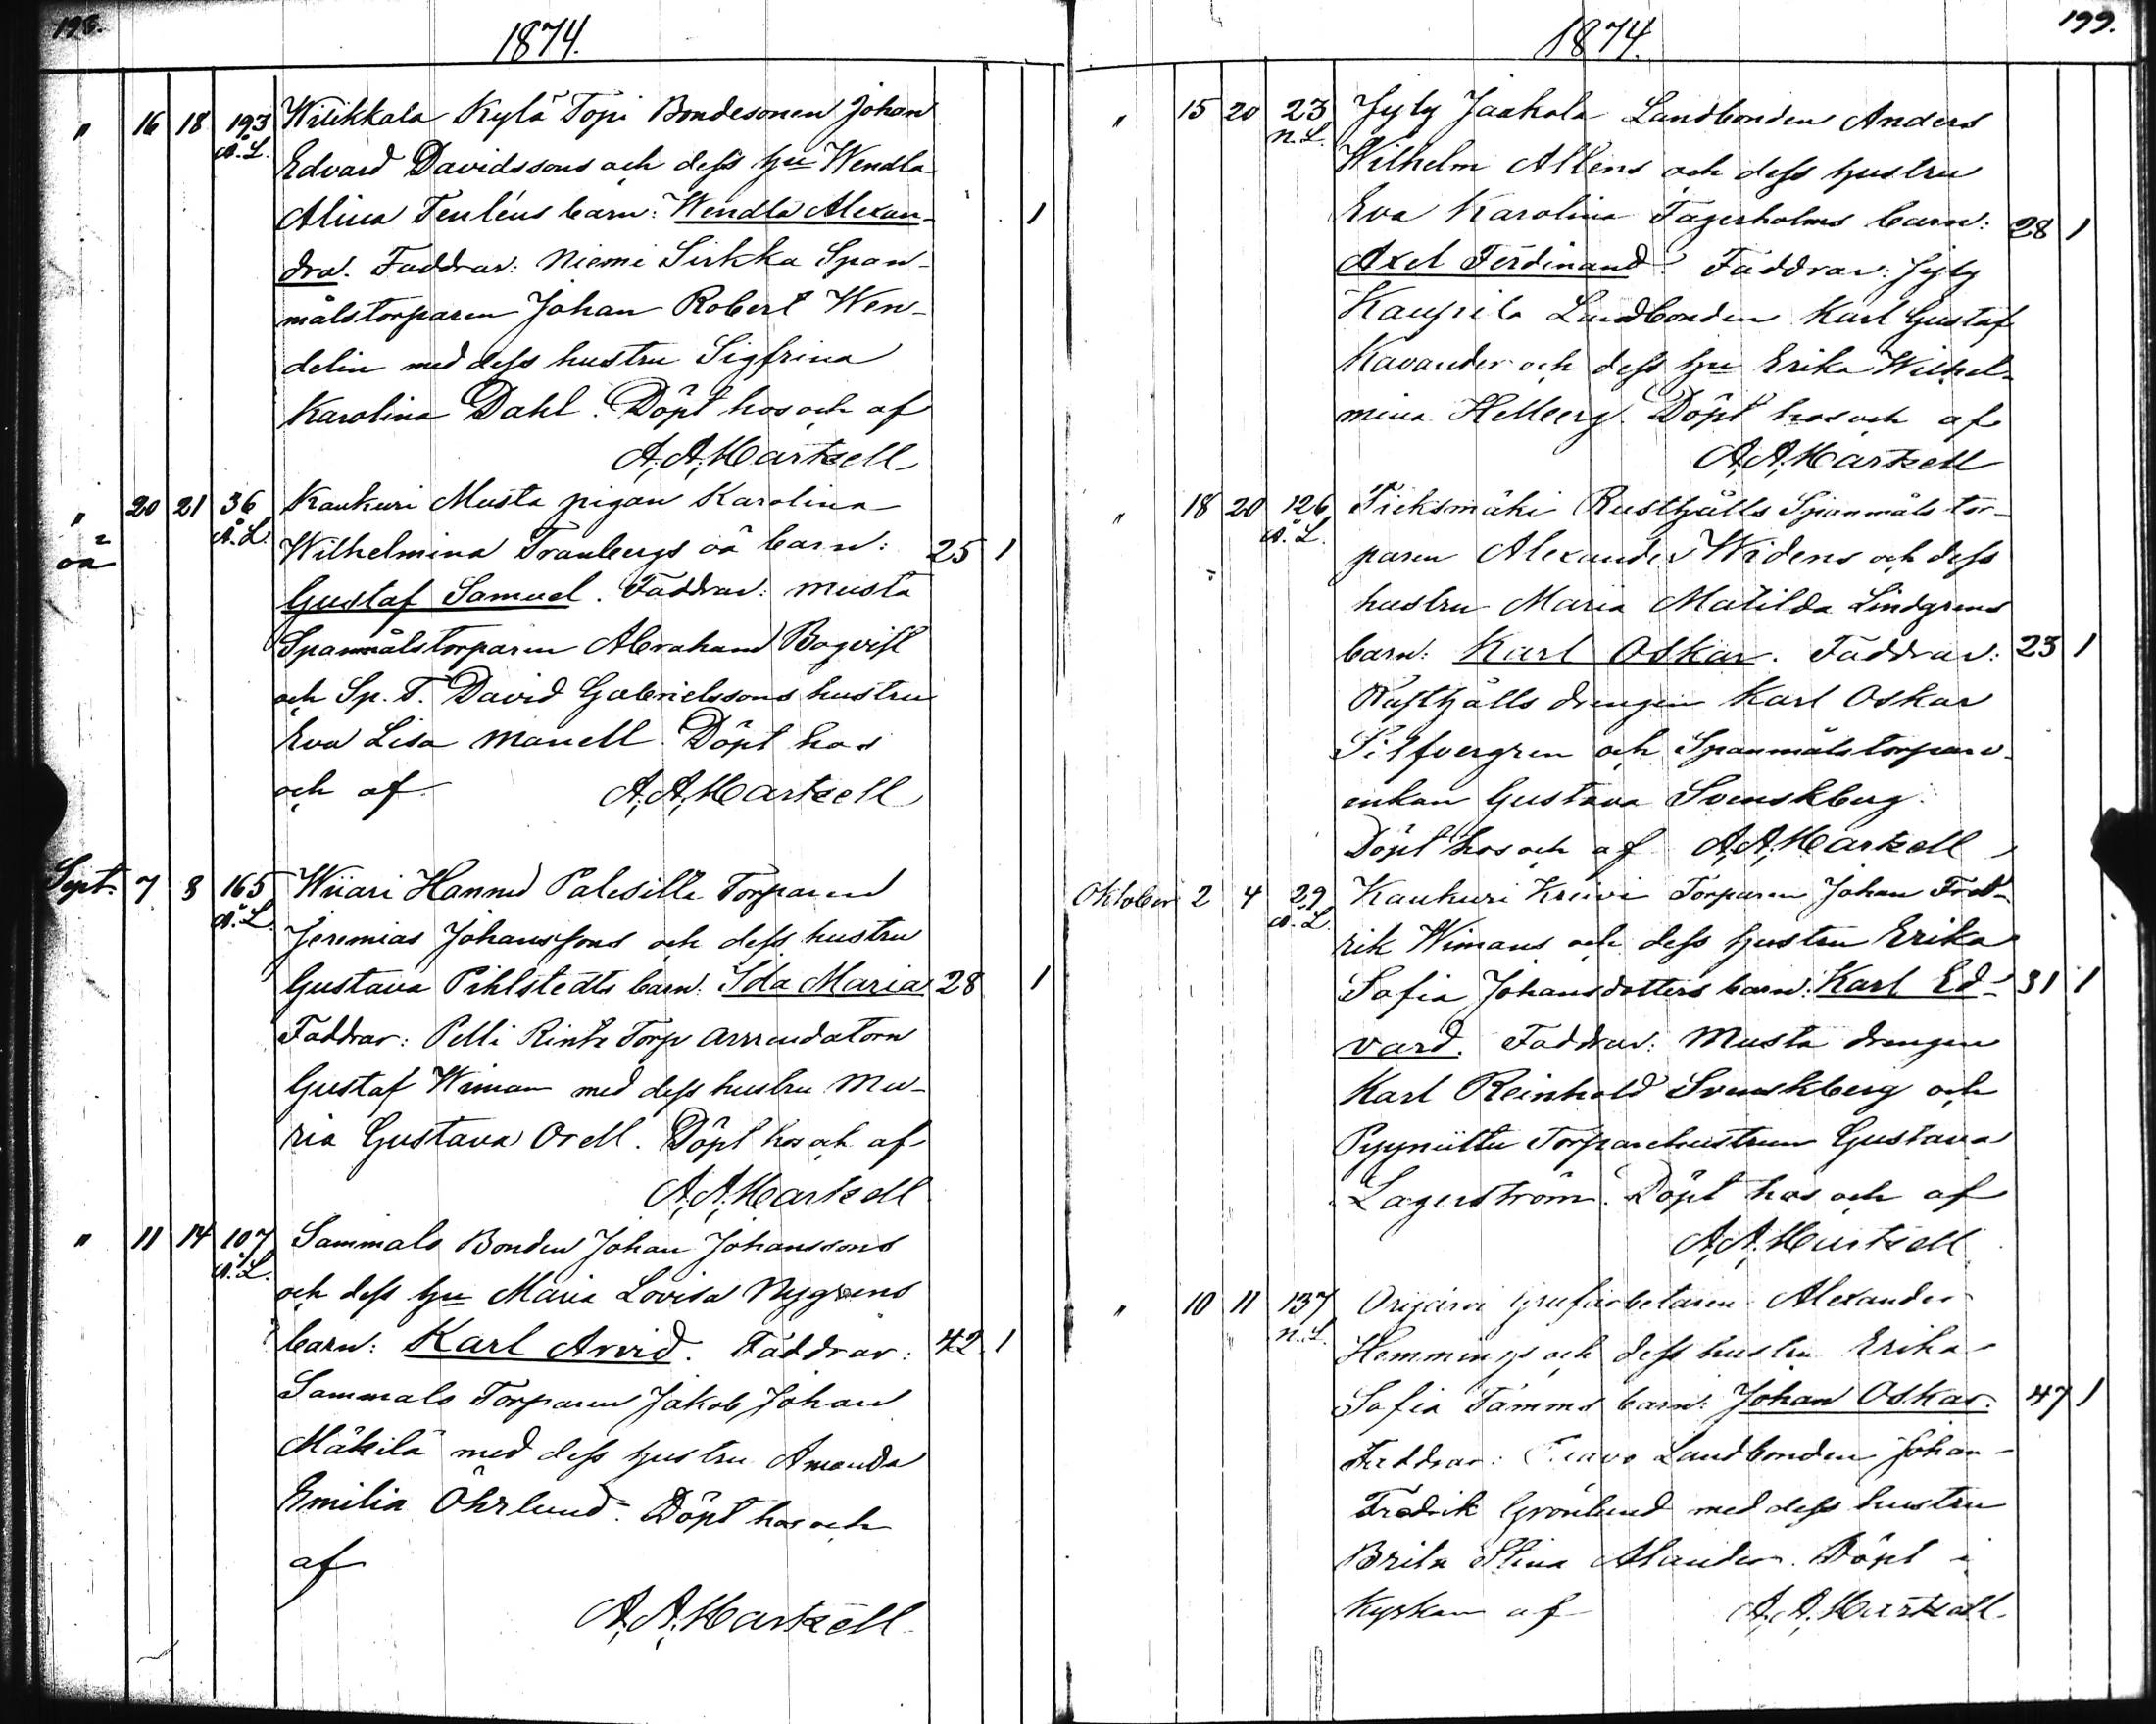 198.
1874.
" 16 18 193 Wiikkala Kylä Topi Bondesonen Johan
Å.L. Edvard Davidssons och dess hu Wendla
Alina Tenléns barn: Wendla Alexan- 1
dra. Faddrar: Niemi Sirkka Span-
målstorparen Johan Robert Wen-
delin med dess hustru Sigfrina
Karolina Dahl. Döpt hos och af
A.A. Hartzell
" 20 21 36 Kaukuri Musta pigan Karolina
oä Å.L. Wilhelmina Tranbergs oä barn: 25 1
Gustaf Samuel. Faddrar: Musta
Spanmålstorparen Abraham Bogvist
och Sp. T. David Gabrielssons hustru
Eva Lisa Manell. Döpt hos
och af A.A. Hartzell
Sept. 7 8 165 Wiiari Hannus Palesilta Torparen
Å.L. Jeremias Johanssons och dess hustru
Gustava Pihlstedts barn: Ida Maria 28 1
Faddrar: Pelli Rinta Torp Arrendatorn
Gustaf Wiman med dess hustru Ma-
ria Gustava Orell. Döpt hos och af
A.A. Hartzell
" 11 14 107 Sammalo Bonden Johan Johanssons
Å.L. och dess hu Maria Lovisa Nygrens
barn: Karl Arvid. Faddrar: 42 1
Sammalo Torparen Jakob Johan
Mäkilä med dess hustru Amanda
Emilia Öhrlund. Döpt hos och
af
A.A. Hartzell
199.
1874.
" 15 20 23 Jyly Jaakola Landbonden Anders
N.L. Wilhelm Allens och dess hustru
Eva Karolina Fagerholms barn: 28 1
Axel Ferdinand. Faddrar: Jyly
Kaupila Landbonden Karl Gustaf
Kavander och dess hu Erika Wilhel-
mina Hellberg. Döpt hos och af
A.A. Hartzell
" 18 20 126 Fiiksmäki Rusthålls Spanmåls tor-
Å.L. paren Alexander Widens och dess
hustru Maria Matilda Lindgrens
barn: Karl Oskar. Faddrar: 23 1
Rusthålls drengen Karl Oskar
Silfvergren och Spanmålstorpare-
enkan Gustava Svenskberg.
Döpt hos och af A.A. Hartzell
Oktober 2 4 29 Kaukuri Kreivi Torparen Johan Fred-
Å.L. rik Wimans och dess hustru Erika
Sofia Johansdotters barn: Karl Ed- 31 1
vard. Faddrar: Musta drengen
Karl Reinhold Svenskberg och
Pyyniittu Torparehustrun Gustava
Lagerström. Döpt hos och af
A.A. Hartzell
" 10 11 137 Orijärvi grufarbetaren Alexander
N.L. Hemmings och dess hustru Erika
Sofia Tamms barn: Johan Oskar. 47 1
Faddrar: Landbonden Johan
Fredrik Grönlund med dess hustru
Brita Stina Alander. Döpt i
Kyrkan af A.A. Hartzell